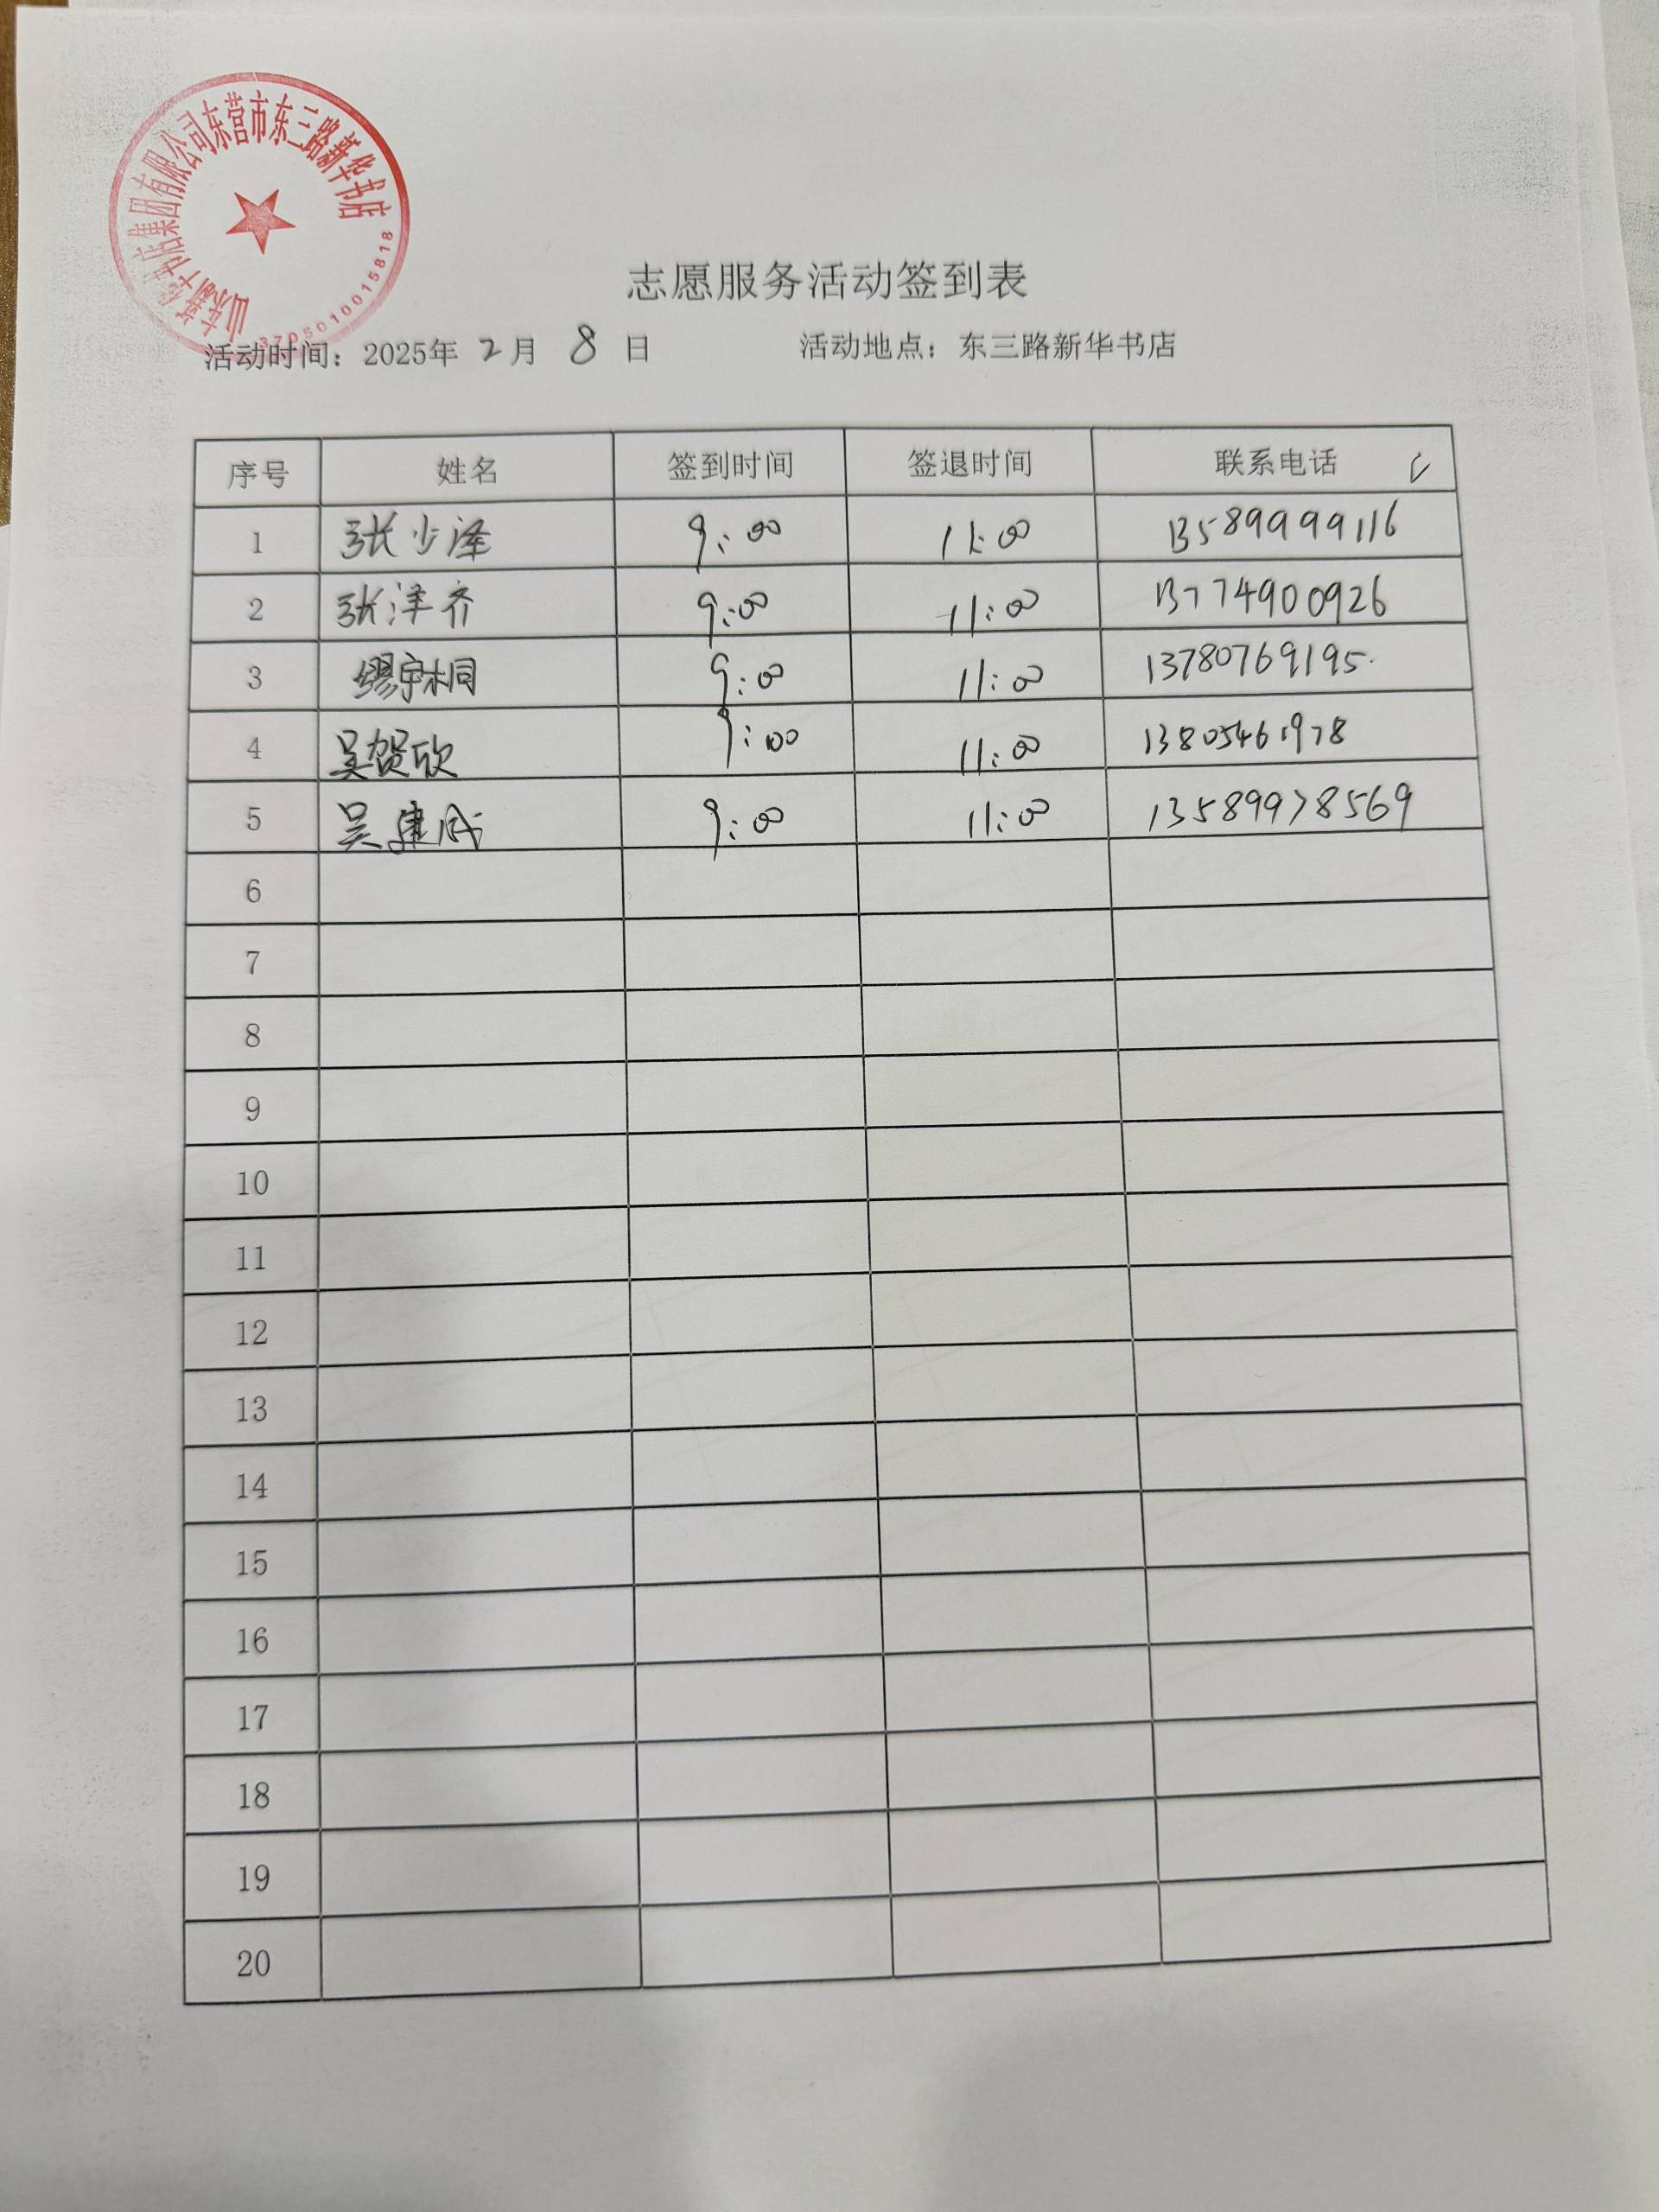 山东新华书店集团有限公司东营市东三路新华书店
3705010015818
志愿服务活动签到表
活动时间：2025年 2月 8 日 活动地点：东三路新华书店
序号 姓名 签到时间 签退时间 联系电话
1 张少泽 9:00 11:00 13589999116
2 张洋齐 9:00 11:00 13774900926
3 9:00 11:00 13780769195
4 吴贺欣 9:00 11:00 13805461978
5 吴建成 9:00 11:00 13589978569
6
7
8
9
10
11
12
13
14
15
16
17
18
19
20